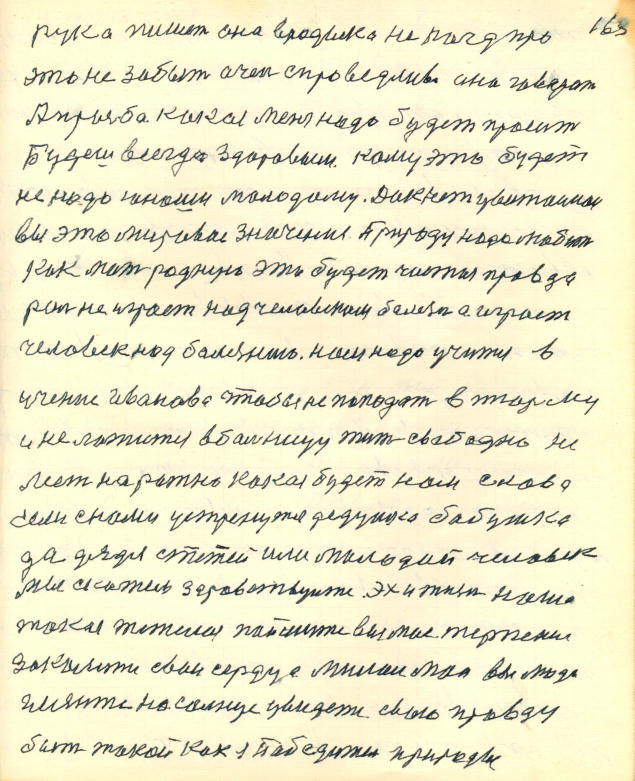 163
рука пишет она владыка не когда про
это не забыт очен справедлива она говарит
А просьба какая меня надо будет просит
Будеш всегда здаровым кому это будет
не надо юноши молодому. Да
вы это мировое значения Природу надо любит
как мат родную это будет чистая правда
рол не играет над человеком балезн а играет
человек над балезнию. нам надо учится в
учение Иванова чтобы не пападат в тюрму
и не ложится в балницу жит свабодно не
лест на рожно какая будет нам слова
если с нами устренутся дедушка бабушка
да дядя с тетей или молодой человек
мы скажем здравствуите. эх и жизн наша
такая тежелая паймите вы мае терпение
закалите сваи сердца милаи маи вы люди
гляните на солнце увидете сваю правду
быт такой как я Пабедител природы